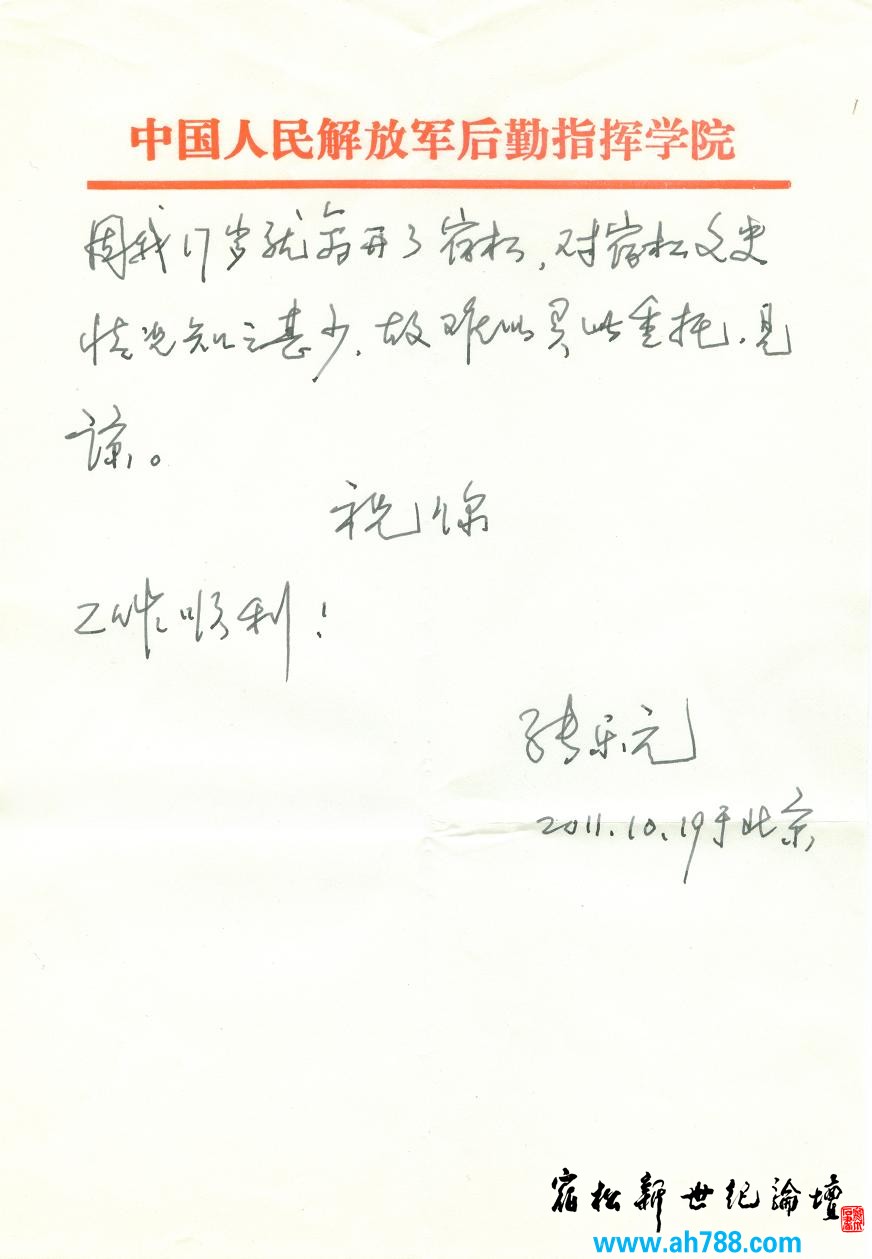 中国人民解放军后勤指挥学院
因我17岁就离开了宿松,对宿松文史
情况知之甚少,故难以负此重托,见
谅。
祝你
工作顺利!
张乐元
2011.10.19于北京
宿松新世纪論壇
www.ah788.com